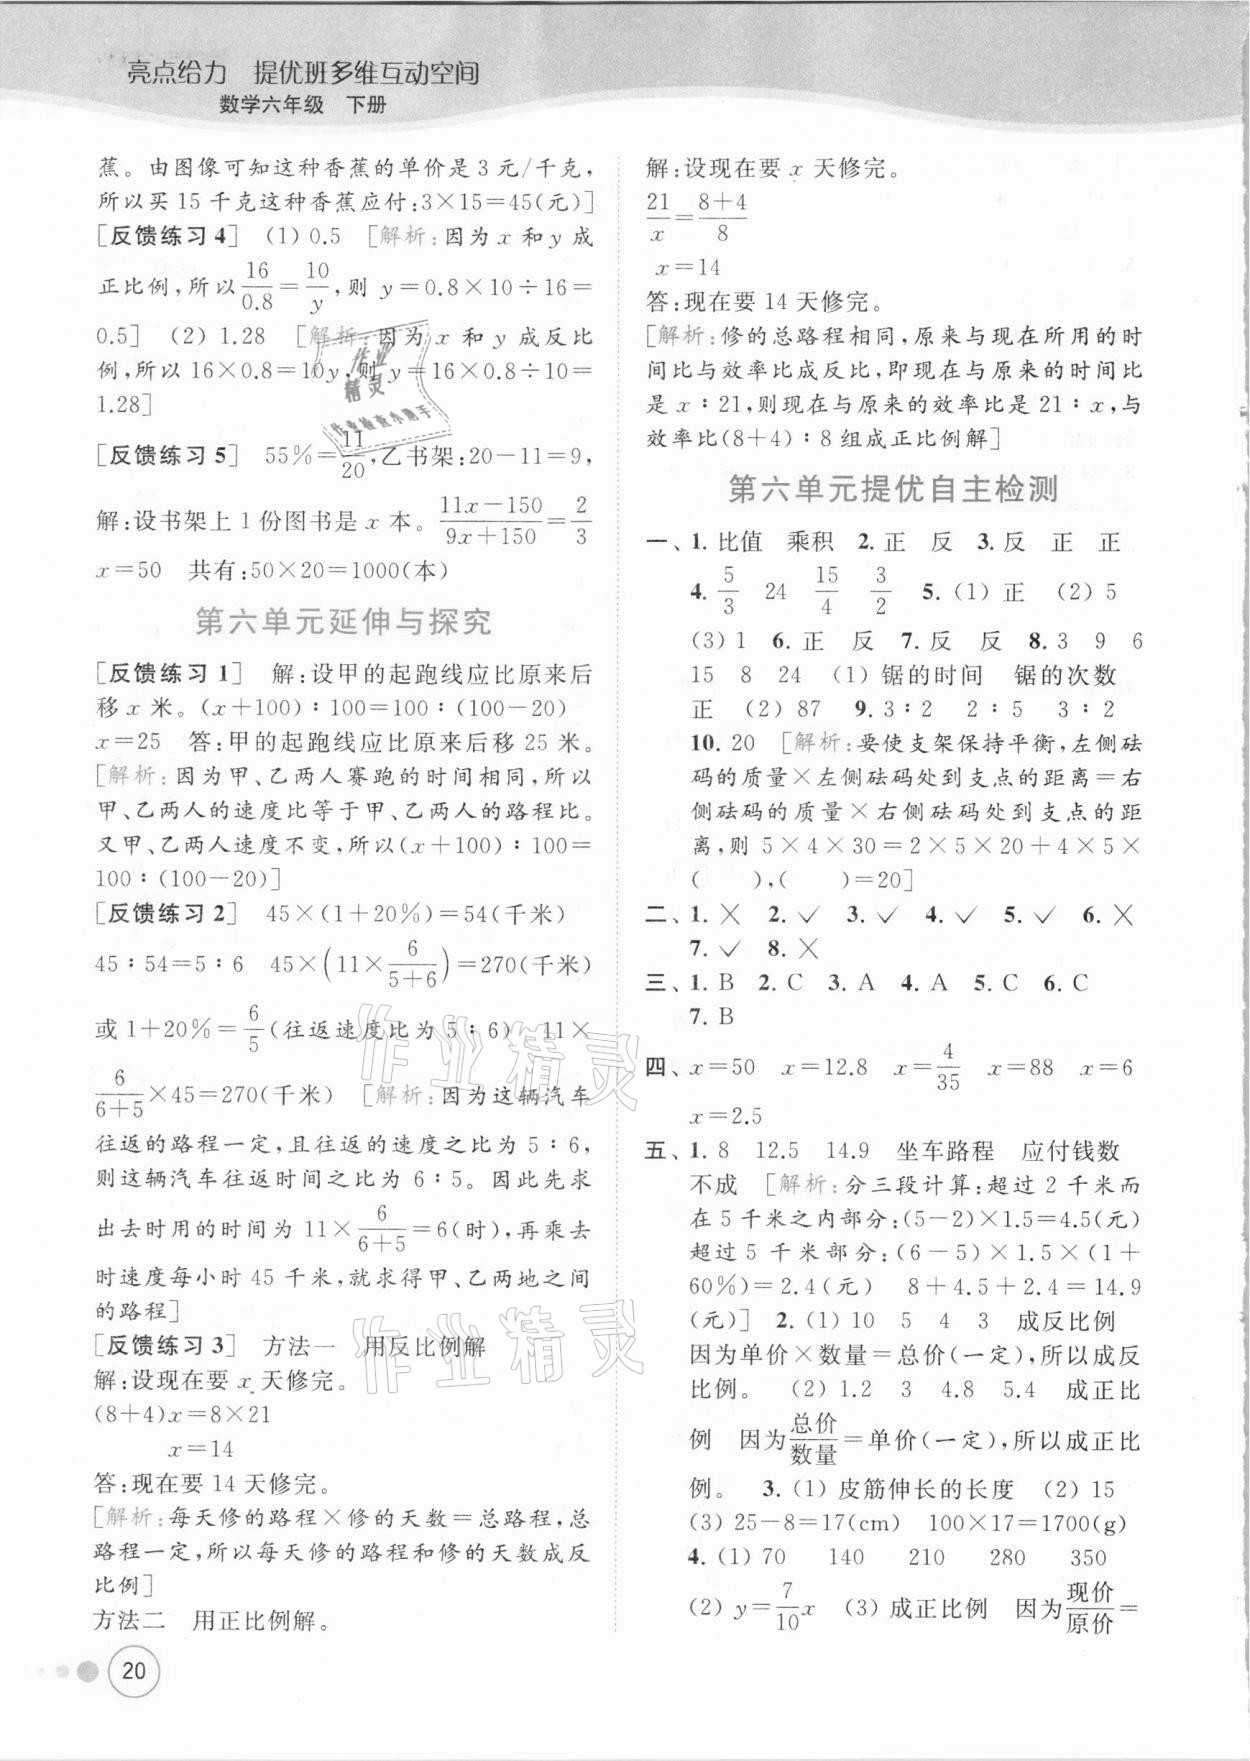 亮点给力 提优班多维互动空间
数学六年级 下册
蕉。由图像可知这种香蕉的单价是 3 元/千克,
所以买 15 千克这种香蕉应付:3×15=45(元)]
[反馈练习 4] (1) 0.5 [解析:因为 x 和 y 成
正比例,所以16/0.8=10/y,则 y=0.8×10÷16=
0.5] (2) 1.28 [解析:因为 x 和 y 成反比
例,所以 16×0.8=10y,则 y=16×0.8÷10=
1.28]
[反馈练习 5] 55%=11/20,乙书架:20-11=9,
解:设书架上 1 份图书是 x 本。(11x-150)/(9x+150)=2/3
x=50 共有:50×20=1000(本)
第六单元延伸与探究
[反馈练习 1] 解:设甲的起跑线应比原来后
移 x 米。(x+100)∶100=100∶(100-20)
x=25 答:甲的起跑线应比原来后移 25 米。
[解析:因为甲、乙两人赛跑的时间相同,所以
甲、乙两人的速度比等于甲、乙两人的路程比。
又甲、乙两人速度不变,所以(x+100)∶100=
100∶(100-20)]
[反馈练习 2] 45×(1+20%)=54(千米)
45∶54=5∶6 45×(11×6/(5+6))=270(千米)
或 1+20%=6/5(往返速度比为 5∶6) 11×
6/(6+5)×45=270(千米) [解析:因为这辆汽车
往返的路程一定,且往返的速度之比为 5∶6,
则这辆汽车往返时间之比为 6∶5。因此先求
出去时用的时间为 11×6/(6+5)=6(时),再乘去
时速度每小时 45 千米,就求得甲、乙两地之间
的路程]
[反馈练习 3] 方法一 用反比例解
解:设现在要 x 天修完。
(8+4)x=8×21
x=14
答:现在要 14 天修完。
[解析:每天修的路程×修的天数=总路程,总
路程一定,所以每天修的路程和修的天数成反
比例]
方法二 用正比例解。
20
解:设现在要 x 天修完。
21/x=(8+4)/8
x=14
答:现在要 14 天修完。
[解析:修的总路程相同,原来与现在所用的时
间比与效率比成反比,即现在与原来的时间比
是 x∶21,则现在与原来的效率比是 21∶x,与
效率比(8+4)∶8 组成正比例解]
第六单元提优自主检测
一、1. 比值 乘积 2. 正 反 3. 反 正 正
4. 5/3 24 15/4 3/2 5. (1) 正 (2) 5
(3) 1 6. 正 反 7. 反 反 8. 3 9 6
15 8 24 (1) 锯的时间 锯的次数
正 (2) 87 9. 3∶2 2∶5 3∶2
10. 20 [解析:要使支架保持平衡,左侧砝
码的质量×左侧砝码处到支点的距离=右
侧砝码的质量×右侧砝码处到支点的距
离,则 5×4×30=2×5×20+4×5×
( ),( )=20]
二、1. × 2. ✓ 3. ✓ 4. ✓ 5. ✓ 6. ×
7. ✓ 8. ×
三、1. B 2. C 3. A 4. A 5. C 6. C
7. B
四、x=50 x=12.8 x=4/35 x=88 x=6
x=2.5
五、1. 8 12.5 14.9 坐车路程 应付钱数
不成 [解析:分三段计算:超过 2 千米而
在 5 千米之内部分:(5-2)×1.5=4.5(元)
超过 5 千米部分:(6-5)×1.5×(1+
60%)=2.4(元) 8+4.5+2.4=14.9
(元)] 2. (1) 10 5 4 3 成反比例
因为单价×数量=总价(一定),所以成反
比例。 (2) 1.2 3 4.8 5.4 成正比
例 因为总价/数量=单价(一定),所以成正比
例。 3. (1) 皮筋伸长的长度 (2) 15
(3) 25-8=17(cm) 100×17=1700(g)
4. (1) 70 140 210 280 350
(2) y=7/10x (3) 成正比例 因为现价/原价=
作业精灵
作业检查小助手
作业精灵
作业精灵